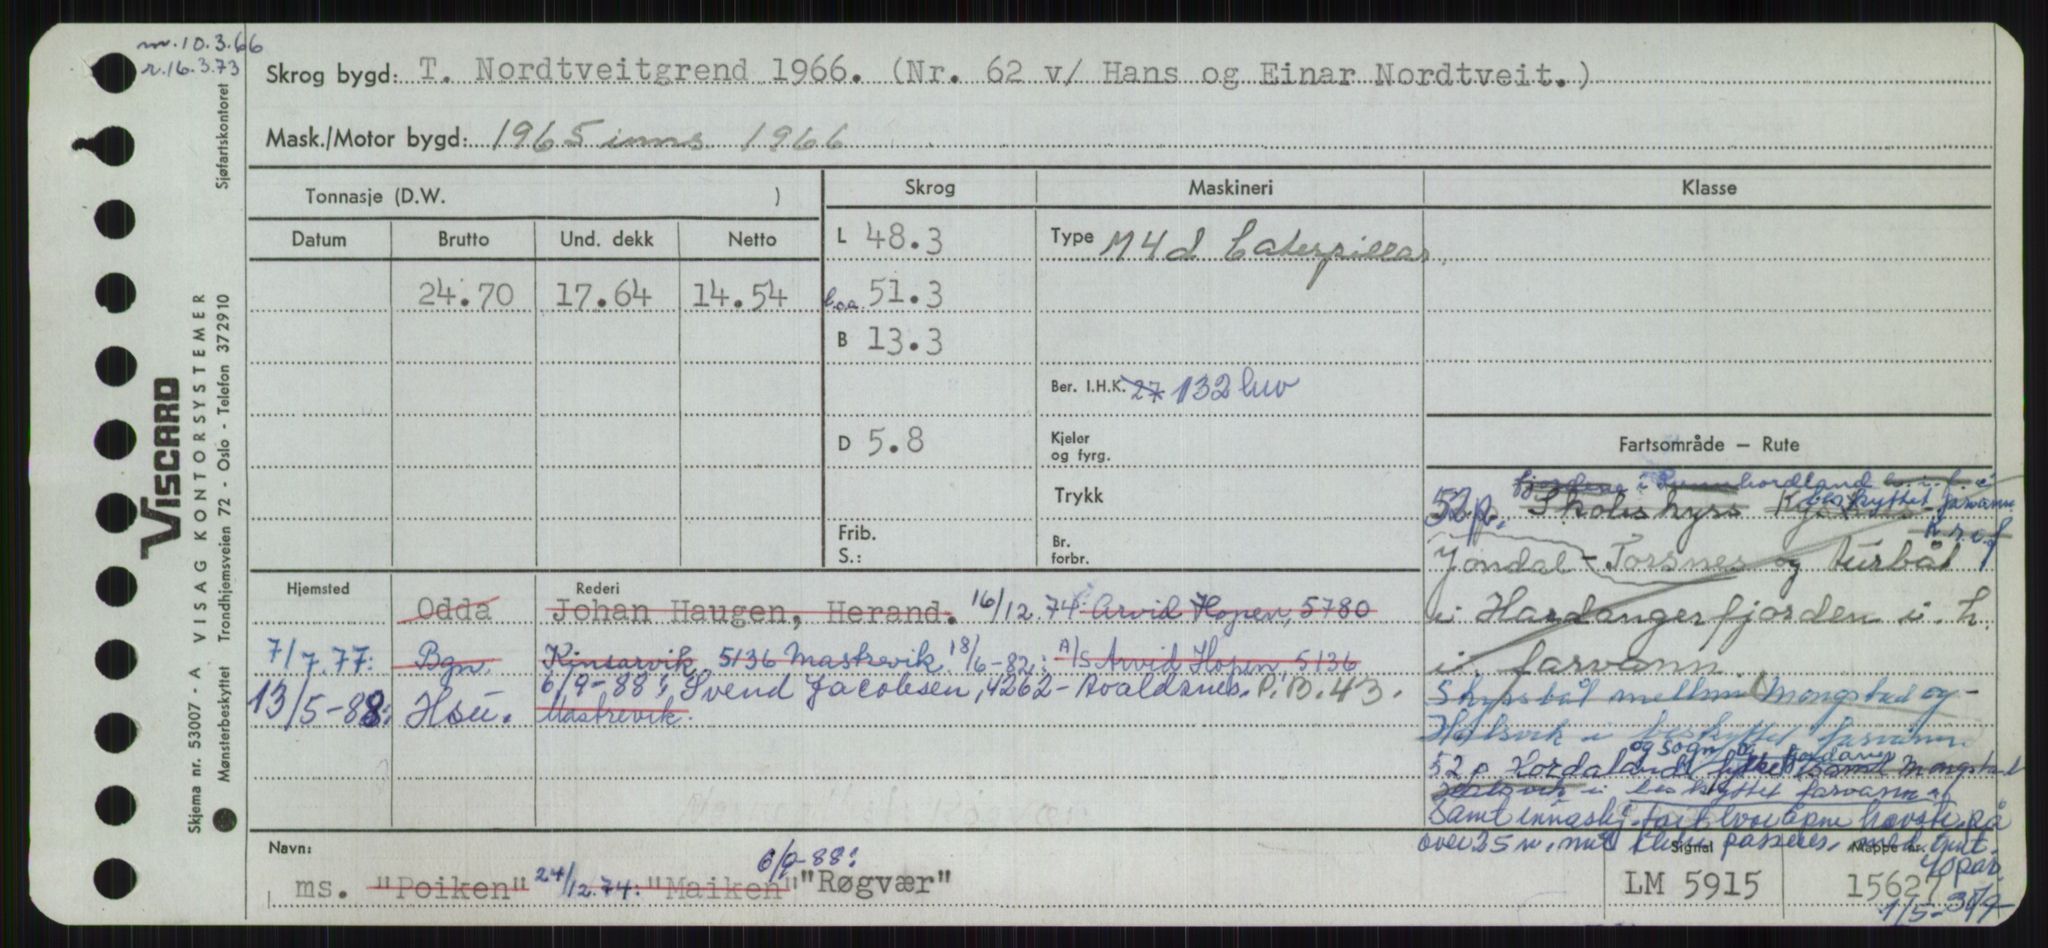 nv. 10.3.66
r. 16.3.73
Skrog bygd: T. Nordtveitgrend 1966. (Nr. 62 v/ Hans og Einar Nordtveit.)
Mask./Motor bygd: 1965 inns 1966
Tonnasje (D.W. )
Skrog
Maskineri
Klasse
Datum Brutto Und. dekk Netto
L 48.3
Type M4d Caterpillar.
24.70 17.64 14.54
l.o.a. 51.3
B 13.3
Ber. I.H.K. 27 132 luv
D 5.8
Kjeler og fyrg.
Trykk
Frib.
S.:
Br. forbr.
Fartsområde – Rute
fjordene i hordland
beskyttet farvann
52 p. Skoleskyss
Jondal - Torsnes og turbåt
i Hardangerfjorden i. h.
i. farvann.
Skyssbåt mellom Mongstad og
Halsvik i beskyttet farvann
og Sogn og Fjordane
52 p Hordaland fylke samt Mongstad
Halsvik i beskyttet farvann
samt innaskj. fart hvor åpne havstr. på
over 25 n. mil ikke passeres. med
40 pas.
1/5-30/9
Hjemsted Rederi
Odda Johan Haugen, Herand. 16/12.74: Arvid Hopen, 5780
7/7.77: Bgn. Kinsarvik, 5136 Mastrevik. 18/6-82: A/S Arvid Hopen, 5136
13/5-88: Hsu. Mastrevik.
6/9-88: Svend Jacobsen, 4262 - Avaldsnes. P.B. 43.
Navn:
ms. "Poiken" 24/12.74: "Maiken" 6/9-88: "Røgvær"
Signal
LM 5915
Mappe nr.
15627
Sjøfartskontoret
VISCARD
VISAG KONTORSYSTEMER
Skjema nr. 53007 - A
Mønsterbeskyttet Trondhjemsveien 72 - Oslo - Telefon 37 29 10